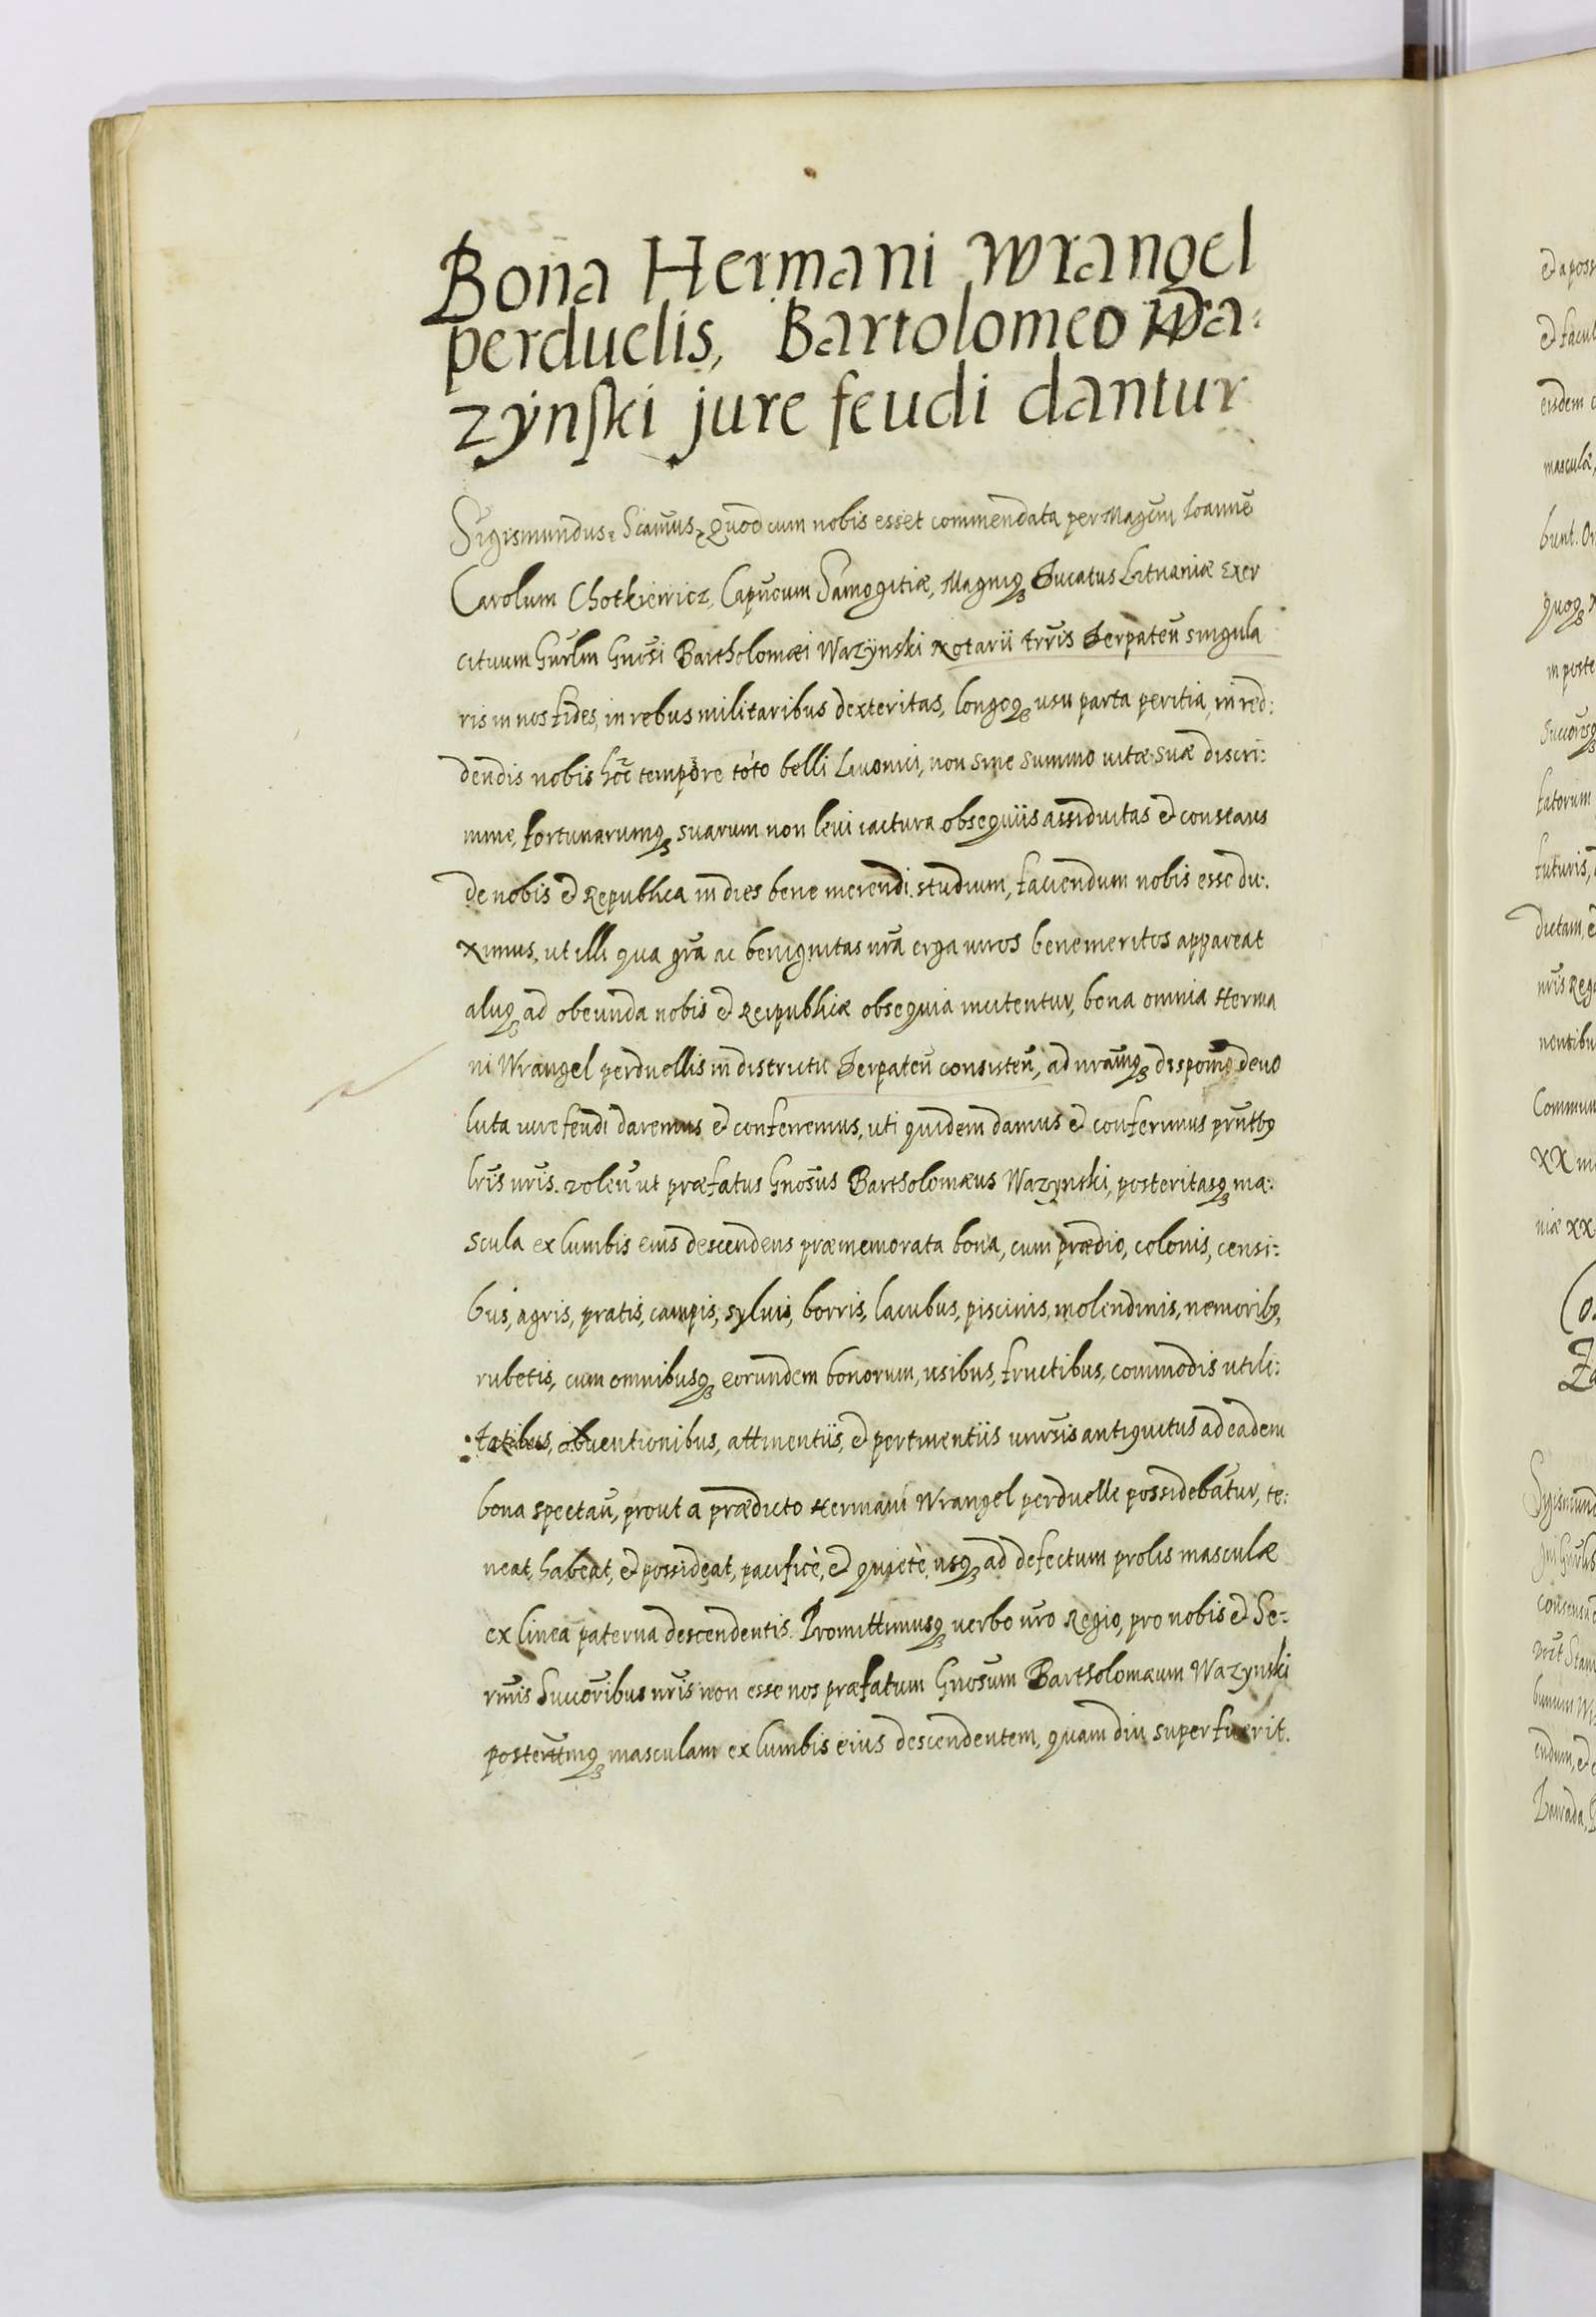 Bona Hermani Wrangel
perduelis, Bartolomeo Wa:
zÿnski jure feudi dantur
Sigismundus: Scimus, Quod cum nobis esset commendata per Magcum Ioannē
Carolum Chotkiewicz, Capneum Samogitiæ, Magniqꝫ Ducatus Lituaniæ Exer
cituum Gnrlm Gnosi Bartholomæi Wazÿnski Notarii trris Derpateñ singula
ris in nos fides, in rebus militaribus dexteritas, longoqꝫ usu parta peritia, in red:
dendis nobis hoc tempore toto belli Livonici, non sine summo vitæ suæ discri:
mine, fortunarumqꝫ suarum non levi iactura obsequiis assiduitas et constans
de nobis et Republica in dies bene merendi studium, faciendum nobis esse du:
ximus, ut illi qua gra ac benignitas nra erga viros benemeritos appareat
aliiqꝫ ad obeunda nobis et Reipublicæ obsequia incitentur, bona omnia Herma
ni Wrangel perduellis in districtu Derpateñ consisteñ, ad nramqꝫ disponem devo
luta iure feudi daremus et conferremus, uti quidem damus et conferimus prntbꝫ
lris nris. Voleñ ut præfatus Gnosus Bartholomæus Wazynski, posteritasqꝫ ma:
scula ex lumbis eius descendens præmemorata bona, cum prædio, colonis, censi:
bus, agris, pratis, campis, sylvis, borris, lacubus, piscinis, molendinis, nemoribꝫ,
rubetis, cum omnibusqꝫ eorundem bonorum, usibus, fructibus, commodis utili:
tatibus, obventionibus, attinentiis, et pertinentiis universis antiquitus ad eadem
bona spectañ, prout a prædicto Hermani Wrangel perduelle possidebatur, te:
neat, habeat, et possideat, pacificè, et quietè, usqꝫ ad defectum prolis masculæ
ex linea paterna descendentis. Promittimusqꝫ verbo nro Regio, pro nobis et Se:
rmis Succoribus nris non esse nos præfatum Gnosum Bartholomæum Wazynski
posteritmqꝫ masculam ex lumbis eius descendentem, quam diu superfuerit.